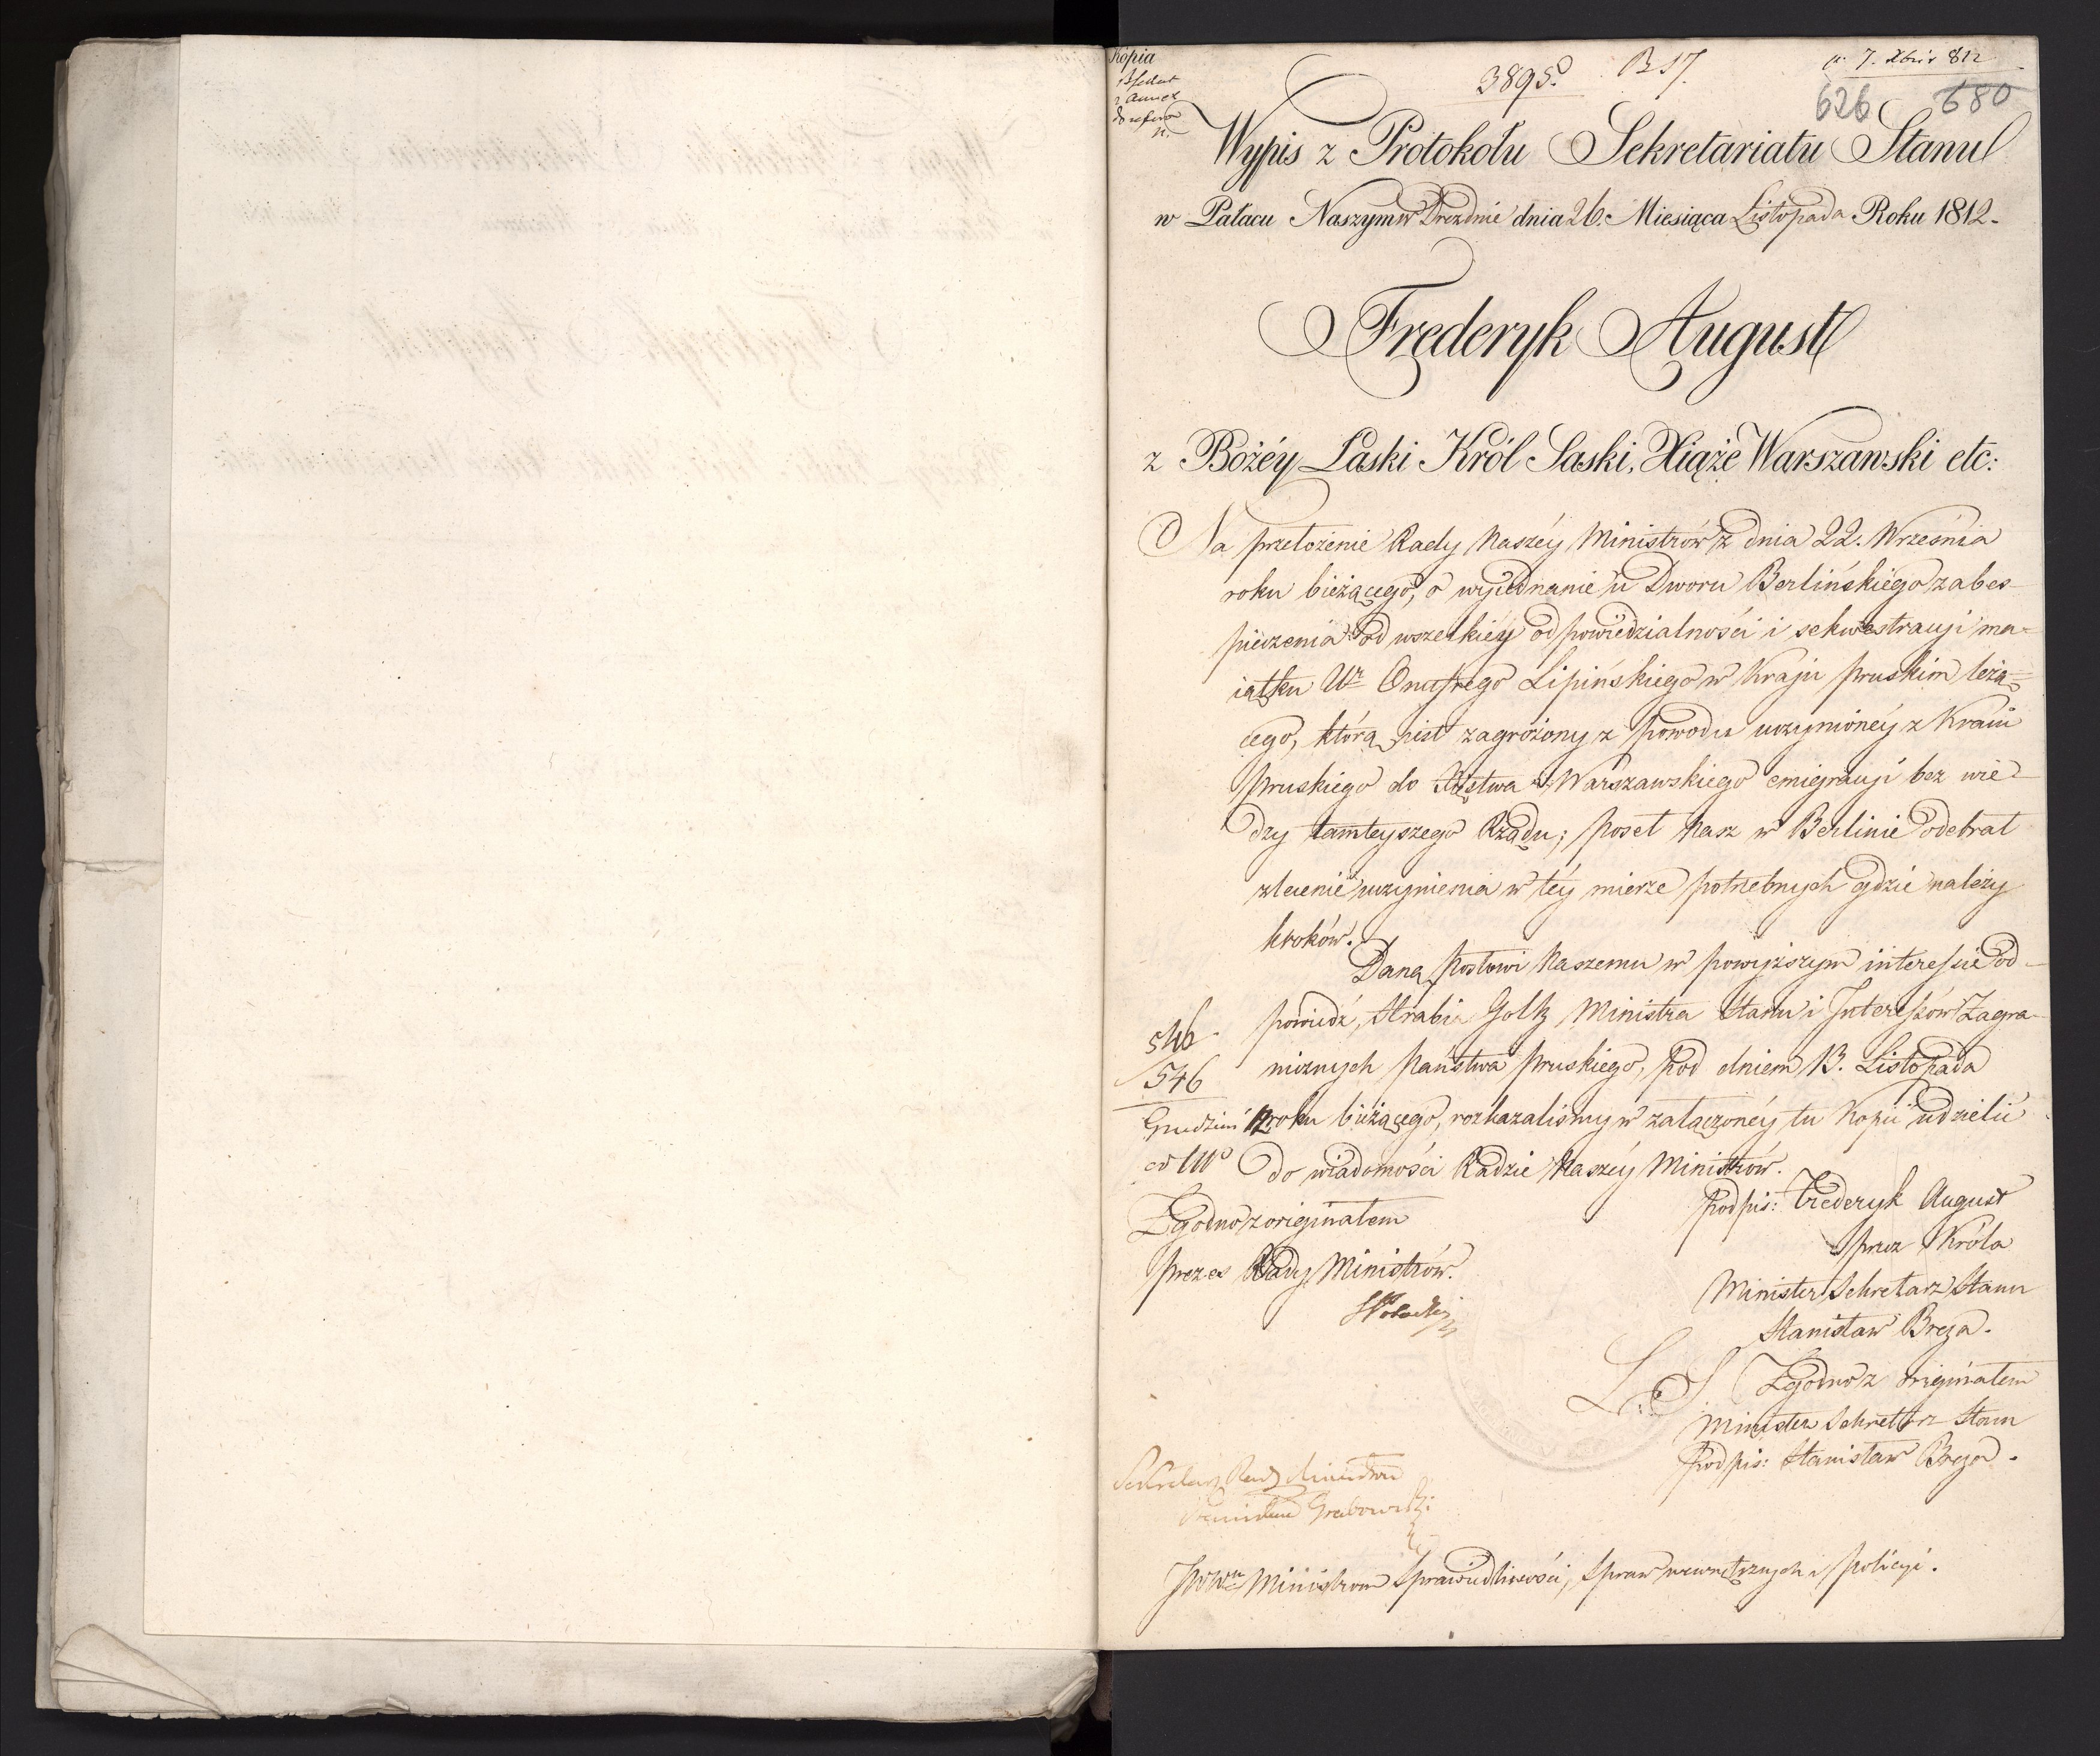 Kopia
3895. B 17. 7. Xbris 812
626 680
Wypis z Protokołu Sekretariatu Stanu
w Pałacu Naszym w Dreznie dnia 26. Miesiąca Listopada Roku 1812.
Frederyk August
z Bożéy Łaski Król Saski, Xiąże Warszawski etc:
Na przełożenie Rady Naszéy Ministrów z dnia 22. Września
roku bieżącego, o wyiednanie u Dworu Berlińskiego zabes-
pieczenia od wszelkiéy odpowiedzialności i sekwestracyi ma-
iątku Ur. Onufrego Lipińskiego w Kraju pruskim leżą=
cego, którą iest zagrożony z powodu uczynionéy z Kraiu
Pruskiego do Xięstwa Warszawskiego emigracyi bez wie-
dzy tamteyszego Rządu; poseł Nasz w Berlinie odebrał
zlecenie uczynienia w téy mierze potrzebnych gdzie należy
kroków.
Daną posłowi Naszemu w powyższym interessie od-
powiedź, Hrabia Goltz Ministra Stanu i Interessów Zagra-
nicznych Państwa Pruskiego, pod dniem 13. Listopada
roku bieżącego, rozkazaliśmy w załączonéy tu Kopii udzielić
do wiadomości Radzie Naszéy Ministrów.
546
546
Grudzień 12
Podpis: Frederyk August
przez Króla
Minister Sekretarz Stanu
Stanisław Breza.
Zgodno z originałem
Prezes Rady Ministrów.
L. S. Zgodno z originałem
Minister Sekretarz Stanu
Podpis: Stanisław Breza.
Sekretarz Rady Ministrów
Stanisław Grabowski
JWWnym Ministrom Sprawiedliwości, Spraw wewnętrznych i Policyi.